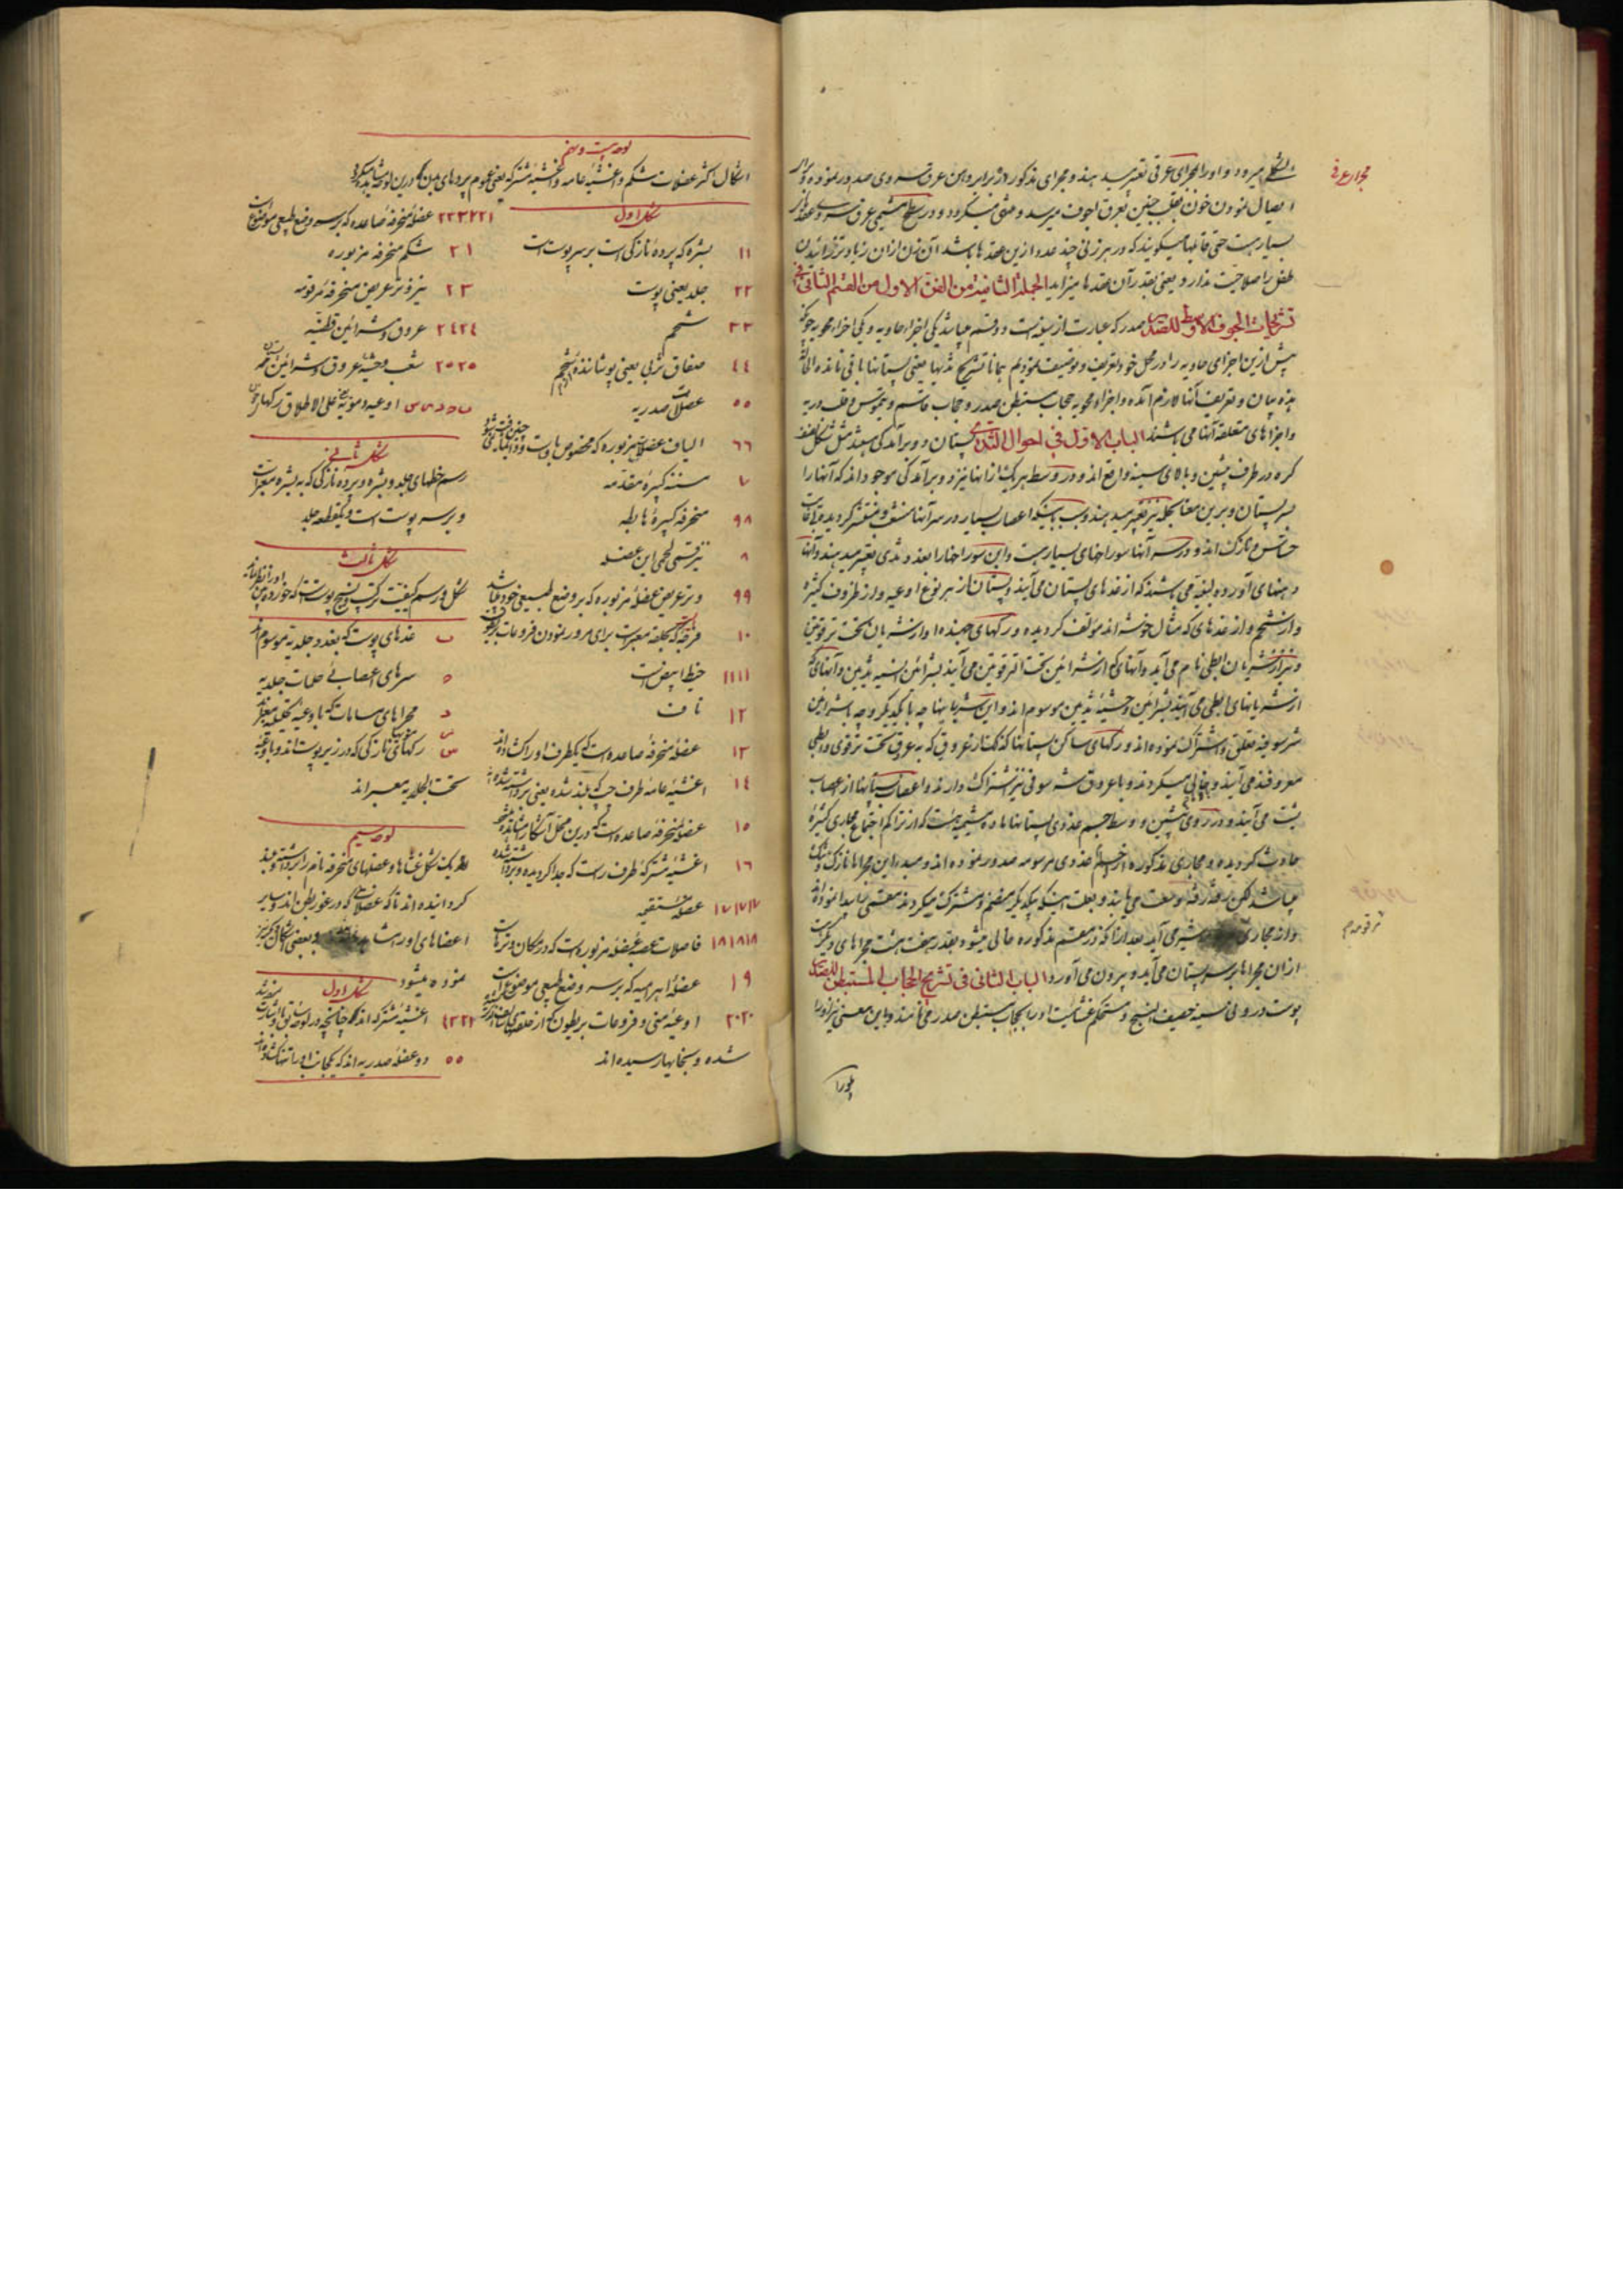 مجرای عرقی
میرود و او را مجرای عرقی تعبیر مید هند و مجرای مذکور در برابر و این عرق سروی صدور نموده و برای
ایصال نمودن خون بقلب جنین بعرق اجوف میرسد و منتهی میکردد و در سطح مشیمی عرق سروی عقدهای
بسیار هست حتی قابلها میکویند که در هر زنی چند عدد ازین عقدها باشد آن زن از ان زیادتر زائیدن
طفل را صلاحیت ندارد یعنی بقدر آن عقدها میزاید الجملة الثانیة من الفن الاول من القسم الثانی فی
تشریحات الجوف الاوسط للصدر صدر که عبارت از سینه است دو قسم میباشد یکی اجزاء حاویه و یکی اجزاء محویه چونکه
پیش ازین اجزای حاویه را در محل خود تعریف و توصیف نمودیم بجا تشریح ثدیها یعنی پستانها باقی مانده
بیان و تعریف آنها لازم آمده و اجزاء محویه حجاب مستبطن صدر و حجاب قاسم و تیموس و قلب و ریه
و اجزاهای متعلقه آنها می باشند الباب الاول فی احوال الثدی پستان دو برآمدکی سپید مثل شکل نصف
کره در طرف پیشین و بالای سینه واقع اند و در وسط هر یک از انها نیز دو برآمدکی موجود اند که آنها را
سر پستان و برین معنا حلمه نیز تعبیر مید هند و بسبب اینکه اعصاب بسیار در سر آنها منشعب و منتشر کردیده بغایت
حساس و نازک اند و در سر آنها سوراخهای بسیار هست و این سوراخها را بعد و ثدی تعبیر مید هند و آنها
دهنهای آورده لبنیه می باشند که از غدهای پستان می آیند و پستان از هر نوع اوعیه و از ظروف کثیره
و از شحم و از غدهای که مثال خوشه اند مولف کردیده و رکهای جهنده او از شریان تحت ترقوتین
و نیز از شریان ابطی نام می آید و آنهای که از شرائین تحت الترقوتین می آیند بشرائین انسیه ثدیین و آنهای که
از شریانهای ابطی می آیند بشرائین وحشیه ثدیین موسوم اند و این شریانها چه با یکدیکر و چه با شرائین
شرسوفیه تعلق و اشتراک نموده اند و رکهای ساکن پستانها که بکنار عروق که به عروق تحت ترقوی و ابطی
معروفند می آیند و خالی میکردند و با عروق شرسوفی نیز اشتراک دارند و اعصاب پستانها از اعصاب
پشت می آیند و در روی پیشین و وسط جسم غدوی پستانها ماده مشیمیه هست که از تراکم و اجتماع مجاری کثیره
حادث کردیده و مجاری مذکوره از جسم غدوی مرسومه صدور نموده اند و مبدء این مجراها نازک و تنک
میباشد لکن رفته رفته وسعت می یابند و بعلت اینکه بیکدیکر منضم و مشترک میکردند مقسمی پیدا نموده اند
و از مجاری شیر می آید بعد از آنکه در مقسم مذکوره خالی میشود بقدر هفت هشت مجراهای دیکر هست
از ان مجراها بر سر پستان می آید و بیرون می آورد الباب الثانی فی تشریح الحجاب المستبطن للصدر
پوست درونی سینه خصیف النسیج و مستحکم غشائیست او را بحجاب مستبطن صدر می نامند و باین معنی نیز او را
ترقوه م
پلورا
لوحه بیست و نهم
اشکال اکثر عضلات شکم و اغشیه عامه و اغشیه مشترکه یعنی عموم پردهای بدن که درین لوحه مشاهده میکردد
شکل اول
۱۱ بشره که پرده نازکی است بر سر پوست است
۲۲ جلد یعنی پوست
۳۳ شحم
۴۴ صفاق ثربی یعنی پوشاننده شحم
۵۵ عضلات صدریه
۶۶ الیاف عضلات مزبوره که مخصوص
۷ مسننه کبیره مقدمه
۹۸ منحرفه کبیره هابطه
۸ نیز قسم لحمی این عضله
۹۹ وتر عریض عضله مزبوره که بر وضع طبیعی خود میباشد
۱۰ فرجه که بحلقه معبر است برای مرور نمودن فروعات
۱۱۱۱ خط ابیض است
۱۲ ناف
۱۳ عضله منحرفه صاعده است که یکطرف او را کشاده اند
۱۴ اغشیه عامه طرف چپ که بلند شده یعنی برداشته شده اند
۱۵ عضله منحرفه صاعده است که درین محل آشکارا مشاهده میشود
۱۶ اغشیه مشترکه طرف راست که جدا کردیده و برداشته شده
۱۷۱۷۱۷ عضله مستقیمه
۱۸۱۸۱۸ فاصلات عصبیه عضله مزبوره است که در مکان وترهاست
۱۹ عضله اهرامیه که بر سر وضع طبیعی موضوع است
۲۰۲۰ اوعیه منی و فروعات بریطون که از حلقه
شده و بخایها رسیده اند
۲۲۳۲۲۱ عضله منحرفه صاعده که بر سر وضع طبیعی موضوع است
۲۱ شکم منحرفه مزبوره
۲۳ نیز وتر عریض منحرفه مرقومه
۲۴۲۴ عروق و شرائین قطنیه
۲۵۲۵ شعب وحشیه عروق و شرائین
اوعیه دمویه یعنی علی الاطلاق رکهای خون
شکل ثانی
رسم خطهای جلد و بشره و پرده نازکی که به بشره معبر است
و بر سر پوست است و یکقطعه جلد
شکل ثالث
شکل و رسم کیفیت ترکیب و نسیج پوست است که خورده بین او را
ب غدهای پوست که بغدد جلدیه موسوم اند
ه سرهای اعصاب حلمات جلدیه
د مجراهای مسامات که باوعیه تحلیلیه معبر اند
س رکهای نازکی که در زیر پوست اند و باوعیه
تحت الجلدیه معبر اند
لوحه سیم
یک شکل غشاها و عضلهای منحرفه نام را برداشته و بلند
کردانیده اند تا که عضلاتی که در غور بطن اند و سایر
اعضاهای او و بعضی اشکال دیکر نیز
نموده میشود
شکل اول
۱۲۲۲ اغشیه مشترکه اند چنانچه در لوحه سابق
۵۵ دو عضله صدریه اند که یکجانب او را تنها کشاده اند